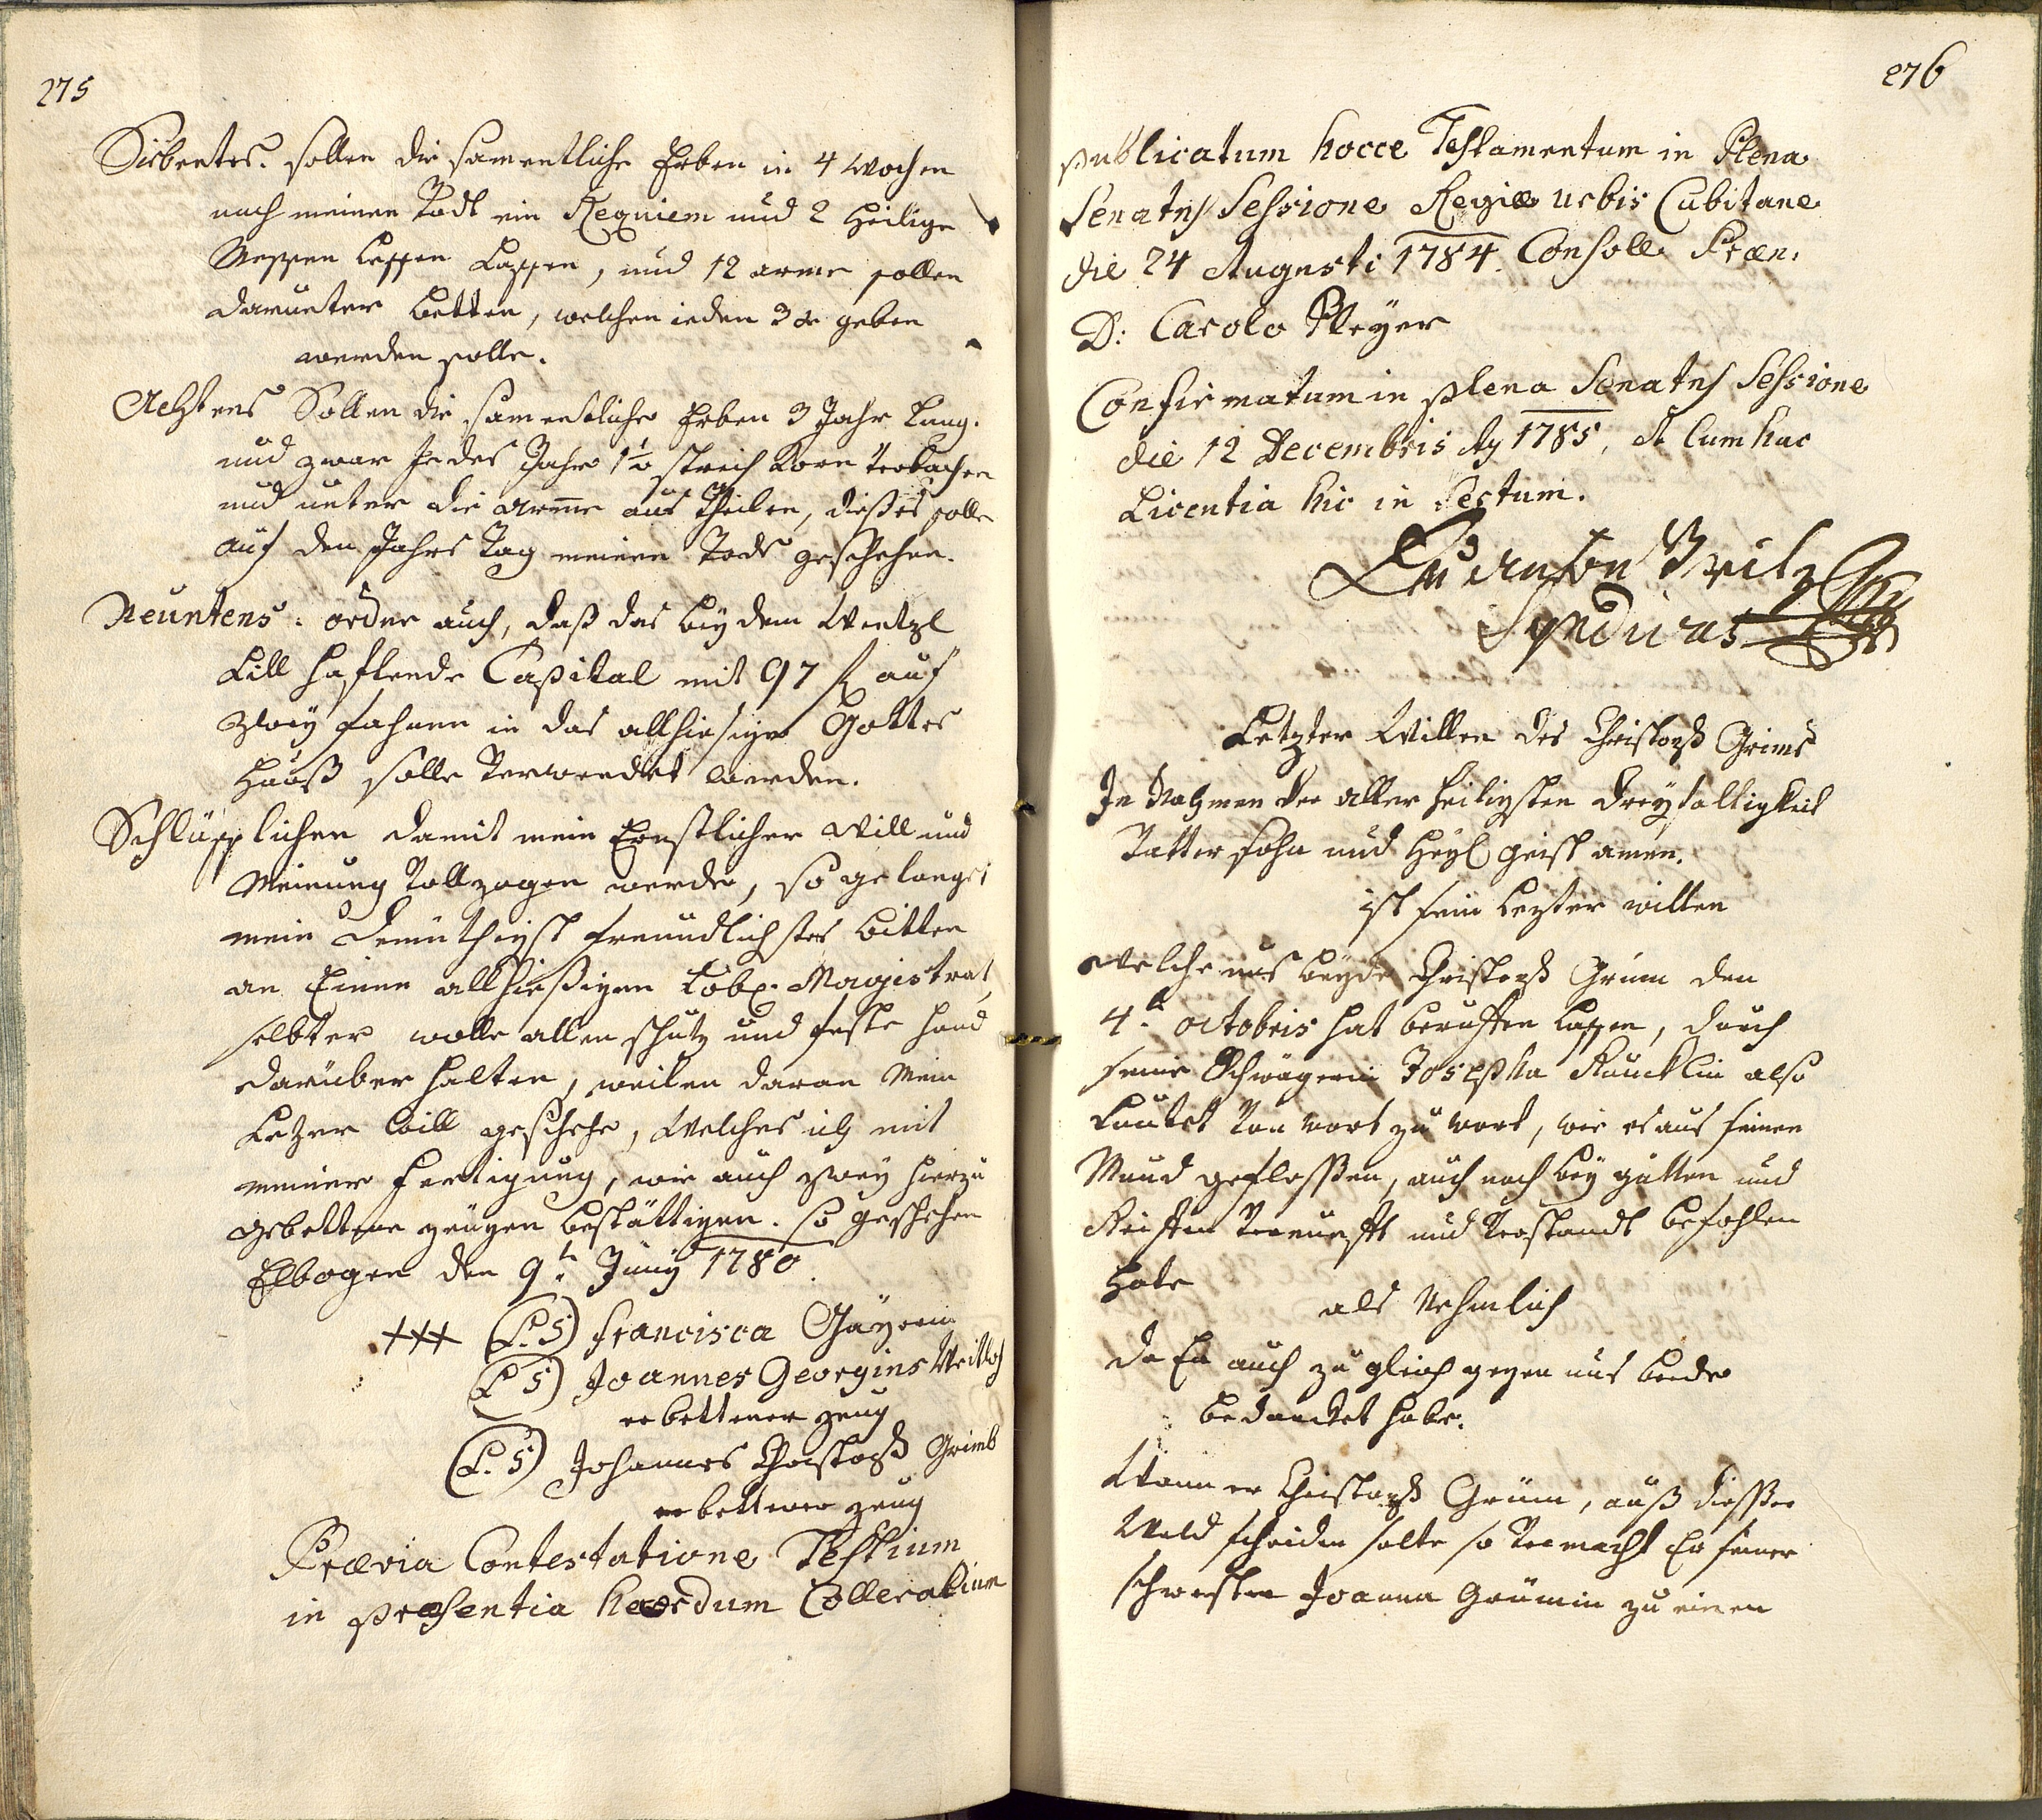 275
Siebentes. sollen die samentliche Erben in 4 Wochen
nach meinen Todt ein Requiem und 2 heilige
Messen lessen Lassen, und 12 arme sollen
darunter betten, welchen ieden 3 xr geben
werden solle.
Achtens Sollen die samentliche Erben 3 Jahr Lang.
und zwar Jedes Jahr 1½ streich Korn verbachen
und unter die arme aus Theilen, dießes solle
auf den Jahrs Tag meinen Todt geschehen.
Neuntens: ordne auch, daß das bey dem Wentzl
Lill hafftende Capital mit 97 f auf
zwey fahnen in das allhiesige Gottes
Hauß solle verwendet werden.
Schlüsslichen damit mein Ernstlicher will und
Meinung vollzogen werde, so gelanget
mein demüthigst freundlichstes bitten
an Einen allhießigen Löbl. Magistrat,
selbter wolle allen schutz und feste hand
darüber halten, weilen daran Mein
Letzer will geschehe, Welches ich mit
meiner fertigung, wie auch zwey hierzu
gebettene zeugen bestättigen. so geschehen
Elbogen den 9t Juny 1780.
+++ (L.S) Francisca Gäyerin
(L S) Joannes Georgius
erbettener zeug
(L. S) Johannes Christoph Grimb
erbettener zeug
Prævia Contestatione Testium
in præsentia hæredum Colleralium
276
publicatum hocce Testamentum in Plena
Senatus Sessione Regiæ urbis Cubitane
die 24 Augusti 1784. Consoll Præn.
D: Carolo Meyer
Confirmatum in plena Senatus Sessione
die 12 Decembris Ay 1785, & Cum hac
Licentia hic in sertum.
Anton
Syndicus
Letzter Willen des Christoph Grims
In Nahmen der aller heiligsten dreyfaltigkeit
Vatter sohn und Heyl geist amen.
ist sein Lezter willen
Welche uns beyde Christoph Grim den
4t octobris hat beruffen lassen, durch
seine Schwägerin Josepha also
Lautet von wort zu wort, wie es aus seinen
Mund geflossen, auch noch bey gutten und
Reiffen Vernunfft und Verstandt befohlen
habe
als Nehmlich
da Er auch zu gleich gegen uns beede
bedancket habe.
Wann er Christoph Grüm, auß dießer
Weld scheiden solte so vermacht Er seiner
schwester Joanna Grümin zu einen